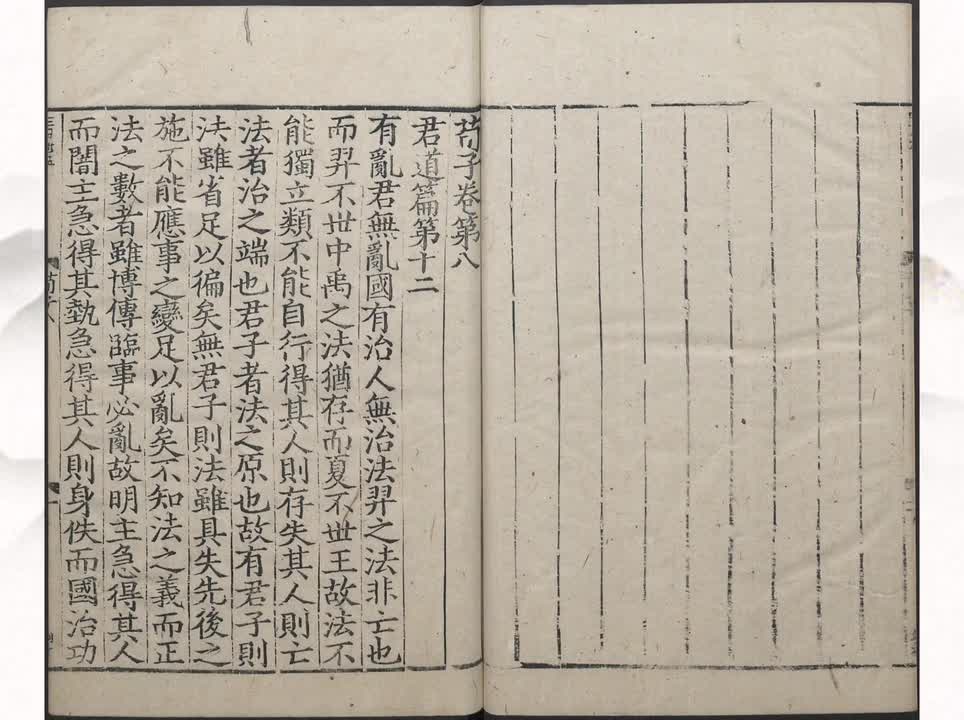 荀子卷第八
君道篇第十二
有亂君無亂國有治人無治法羿之法非亡也
而羿不世中禹之法猶存而夏不世王故法不
能獨立類不能自行得其人則存失其人則亡
法者治之端也君子者法之原也故有君子則
法雖省足以徧矣無君子則法雖具失先後之
施不能應事之變足以亂矣不知法之義而正
法之數者雖博傳臨事必亂故明主急得其人
而闇主急得其埶急得其人則身佚而國治功